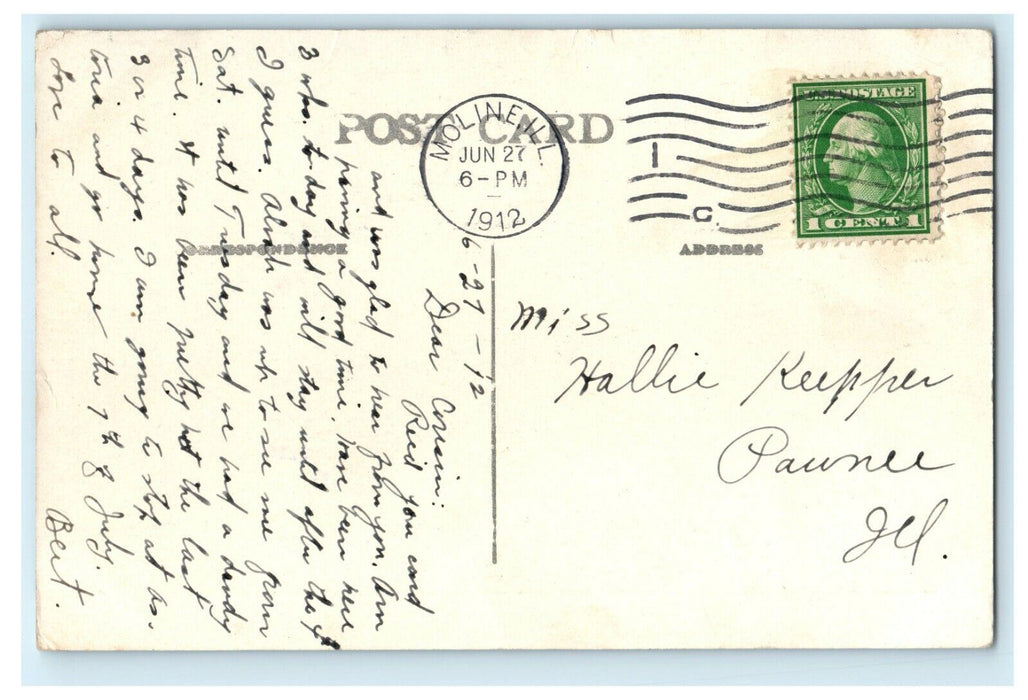 POST CARD
MOLINE ILL.
JUN 27
6-PM
1912
1
C.
U.S. POSTAGE
1 CENT 1
CORRESPONDENCE
ADDRESS
6-27-12
Dear Cousin:
Recd your card
and was glad to hear from you. Am
having a good time. Have been here
3 wks. to-day and will stay until after the 4
I guess. was up to see me from
Sat. until Tuesday and we had a dandy
time. It has been pretty hot the last
3 or 4 days. I am going to stop at
and go home the 7th of July.
Love to all.
Bert.
Miss
Hallie Keepper
Pawnee
Ill.